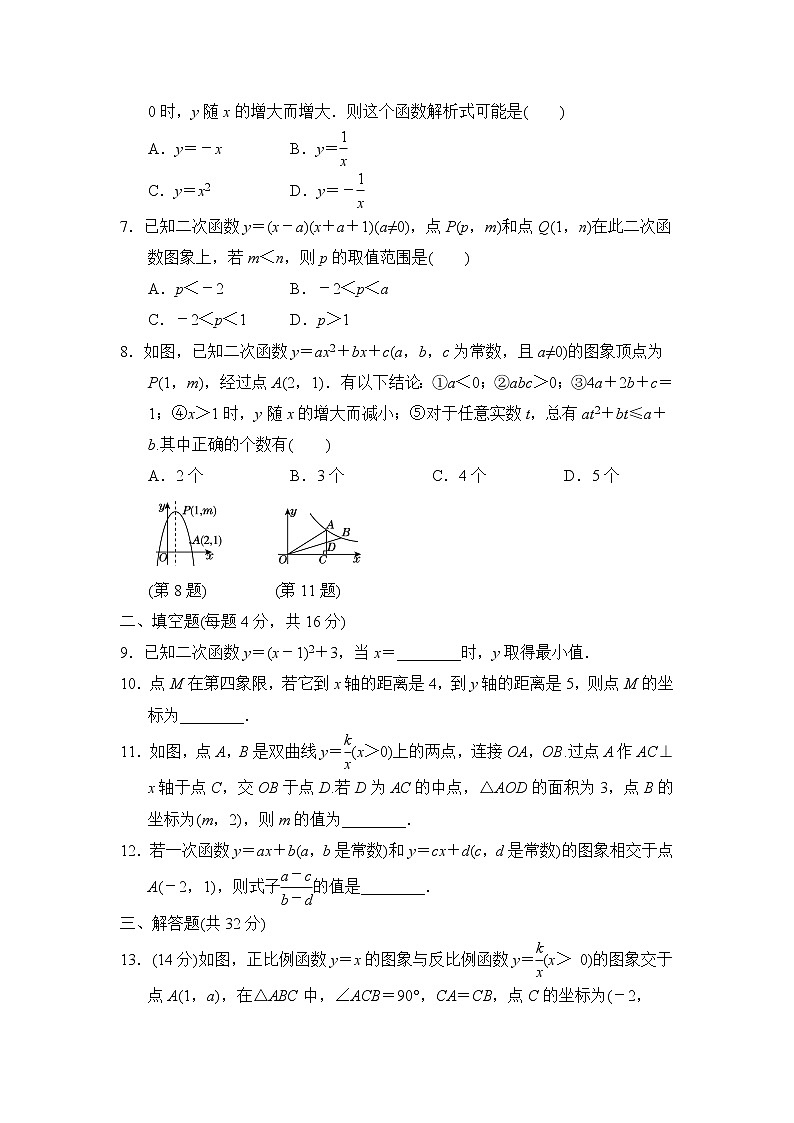 0时，y随x的增大而增大．则这个函数解析式可能是(　　)
A．y＝－x　　B．y＝1/x
C．y＝x²　　D．y＝－1/x
7．已知二次函数y＝(x－a)(x＋a＋1)(a≠0)，点P(p，m)和点Q(1，n)在此二次函
数图象上，若m＜n，则p的取值范围是(　　)
A．p＜－2　　B．－2＜p＜a
C．－2＜p＜1　　D．p＞1
8．如图，已知二次函数y＝ax²＋bx＋c(a，b，c为常数，且a≠0)的图象顶点为
P(1，m)，经过点A(2，1)．有以下结论：①a＜0；②abc＞0；③4a＋2b＋c＝
1；④x＞1时，y随x的增大而减小；⑤对于任意实数t，总有at²＋bt≤a＋
b.其中正确的个数有(　　)
A．2个　　B．3个　　C．4个　　D．5个
y P(1,m) A(2,1) O x
y A B D O C x
(第8题)　　(第11题)
二、填空题(每题4分，共16分)
9．已知二次函数y＝(x－1)²＋3，当x＝________时，y取得最小值．
10．点M在第四象限，若它到x轴的距离是4，到y轴的距离是5，则点M的坐
标为________．
11．如图，点A，B是双曲线y＝k/x(x＞0)上的两点，连接OA，OB.过点A作AC⊥
x轴于点C，交OB于点D.若D为AC的中点，△AOD的面积为3，点B的
坐标为(m，2)，则m的值为________．
12．若一次函数y＝ax＋b(a，b是常数)和y＝cx＋d(c，d是常数)的图象相交于点
A(－2，1)，则式子(a－c)/(b－d)的值是________．
三、解答题(共32分)
13．(14分)如图，正比例函数y＝x的图象与反比例函数y＝k/x(x＞ 0)的图象交于
点A(1，a)，在△ABC中，∠ACB＝90°，CA＝CB，点C的坐标为(－2，